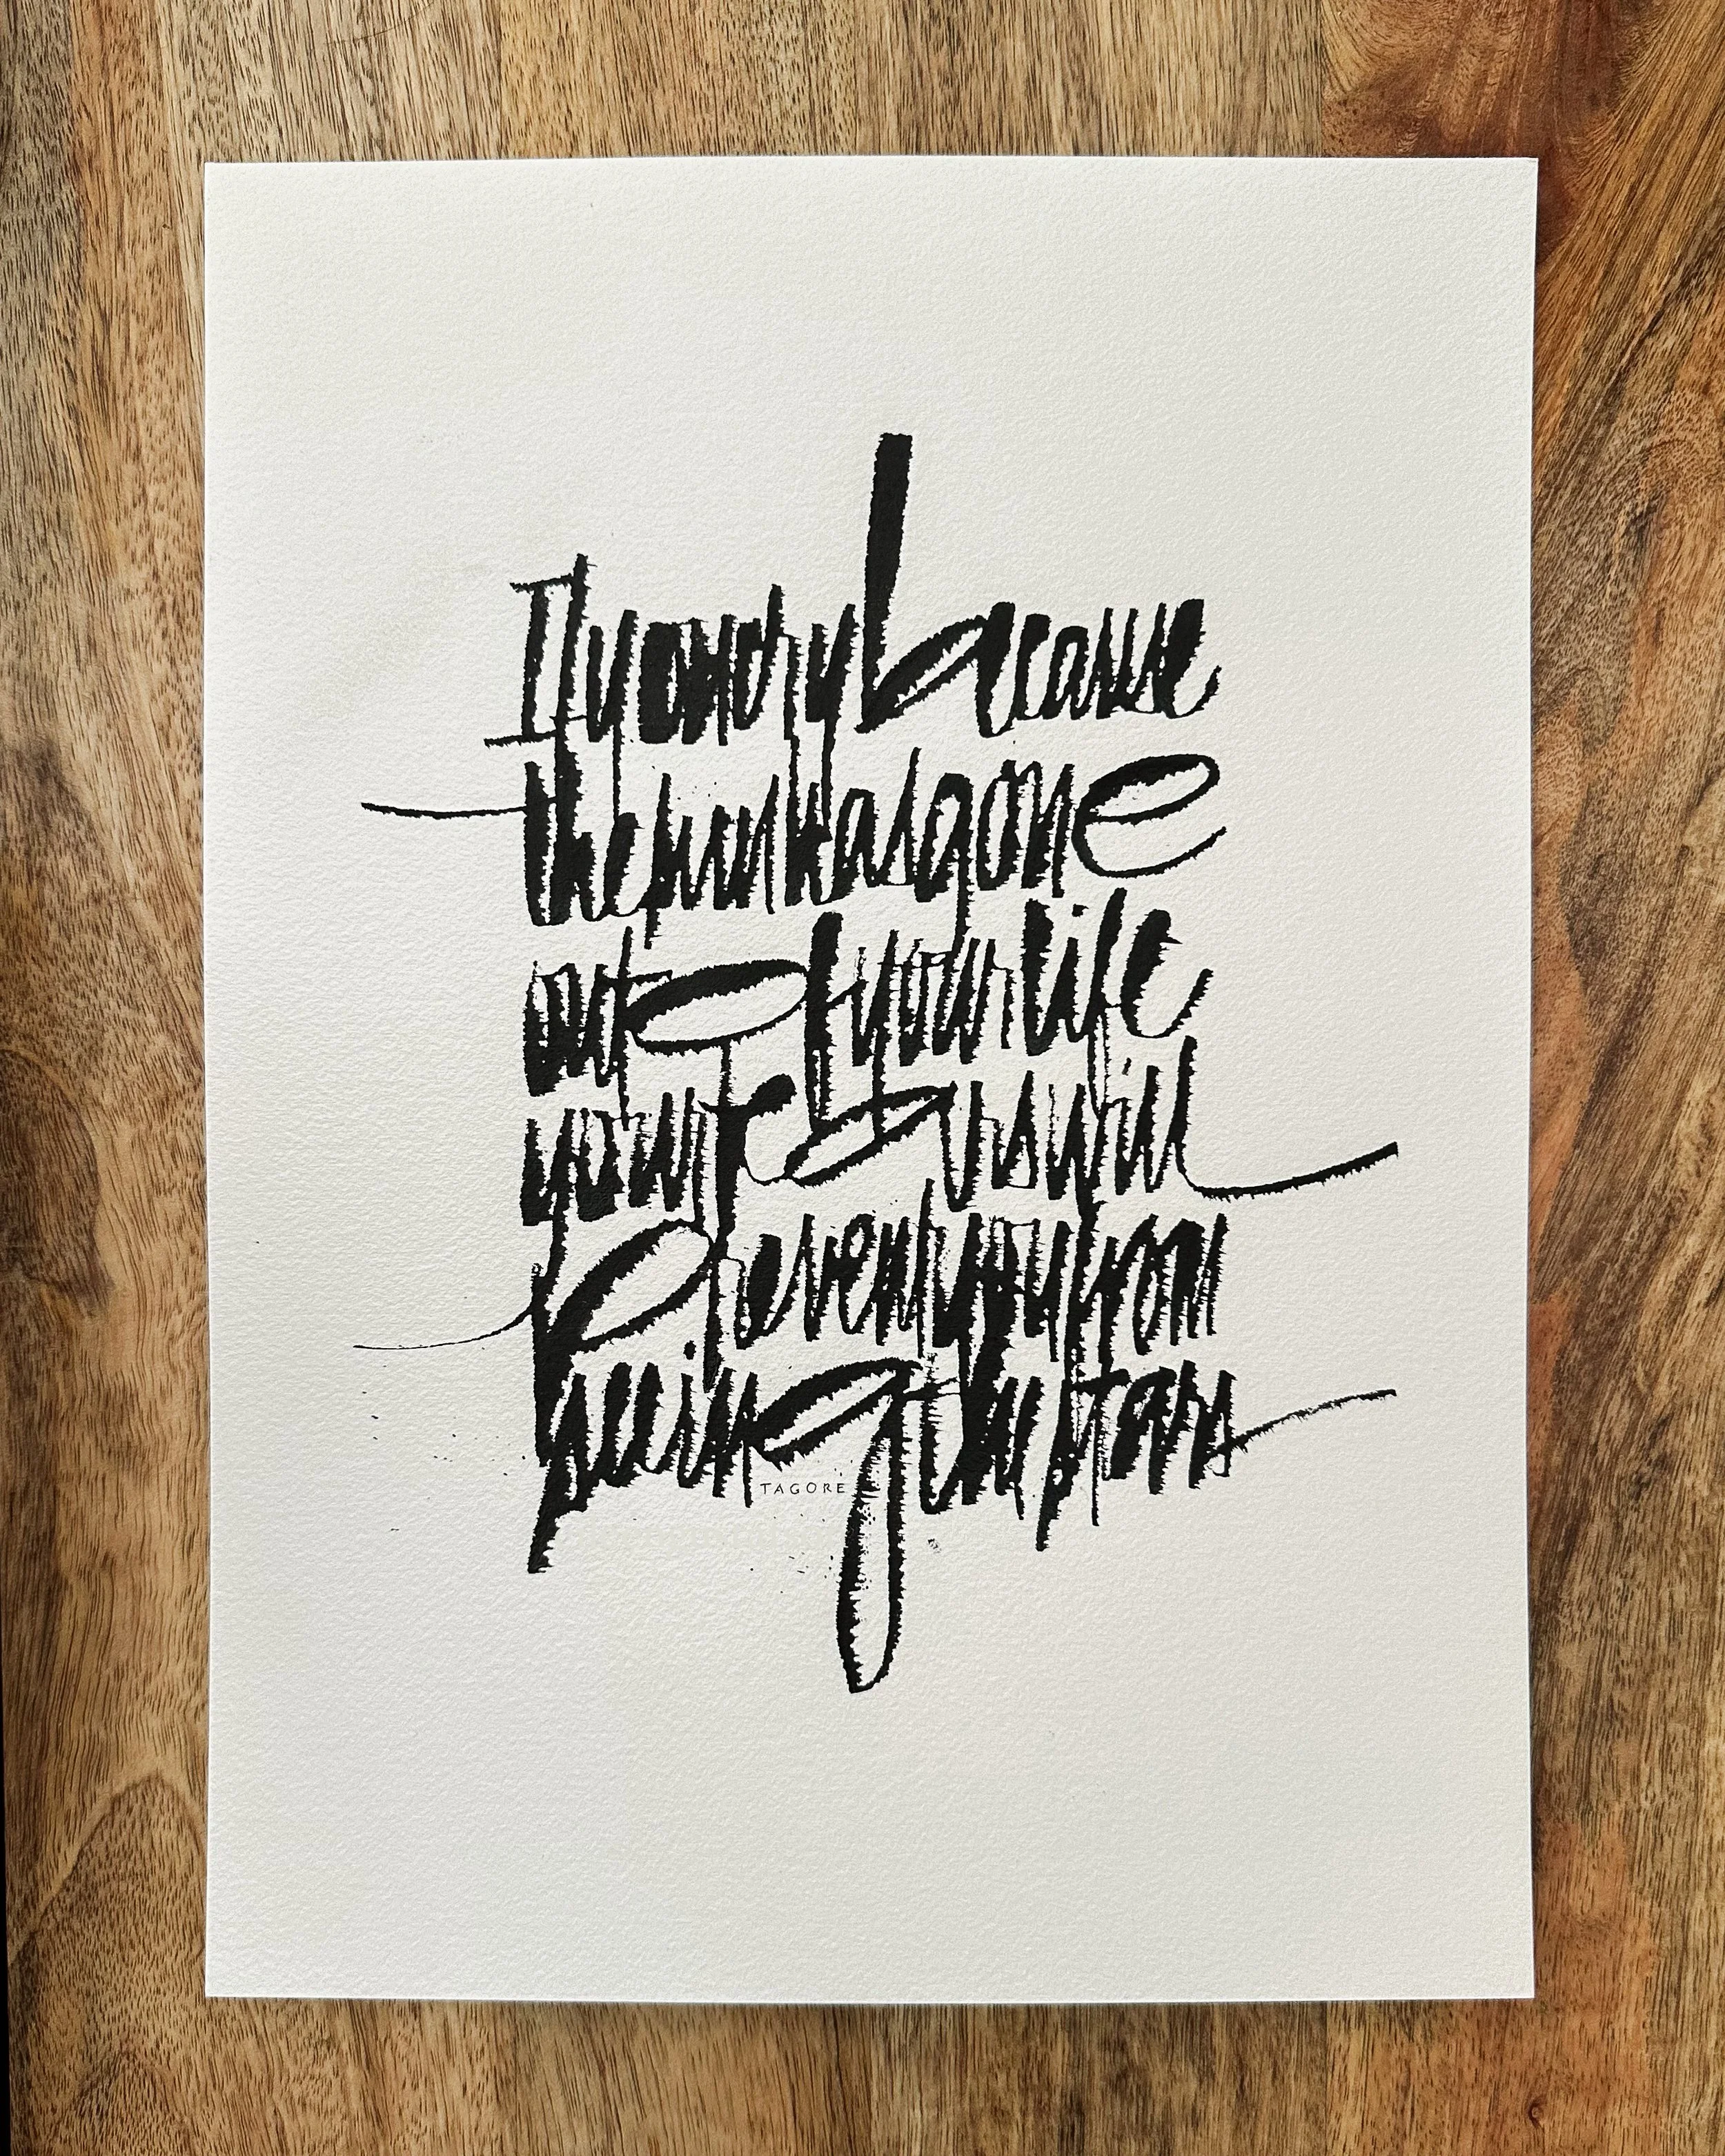 If you cry because
the sun has gone
out of your life
your tears will
prevent you from
seeing the stars
TAGORE